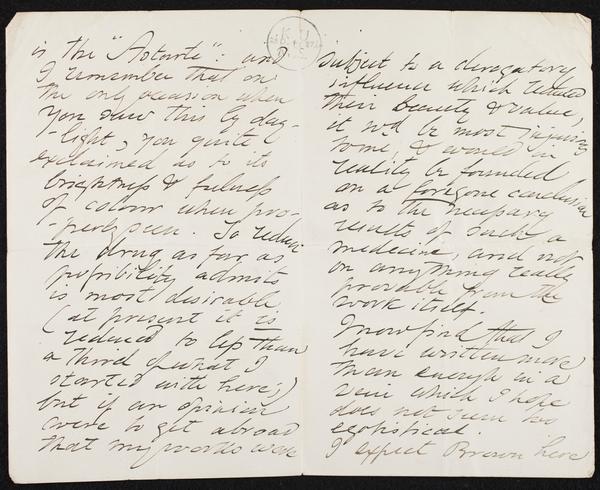 is the "Astarte": and
I remember that on
the only occasion when
you saw this by day-
-light, you quite
exclaimed as to its
brightness & fulness
of colour when pro-
-perly seen. To reduce
the drug as far as
possibility admits
is most desirable
(at present it is
reduced to less than
a third of what I
started with here;)
but if an opinion
were to get abroad
that my works were
subject to a derogatory
influence which reduced
their beauty & value,
it wd be most injurious
to me, & would in
reality be founded
on a foregone conclusion
as to the necessary
results of such a
medicine, and not
on anything really
provable from the
work itself.
I now find that I
have written more
than enough in a
vein which I hope
does not seem too
egotistical.
I expect Brown here